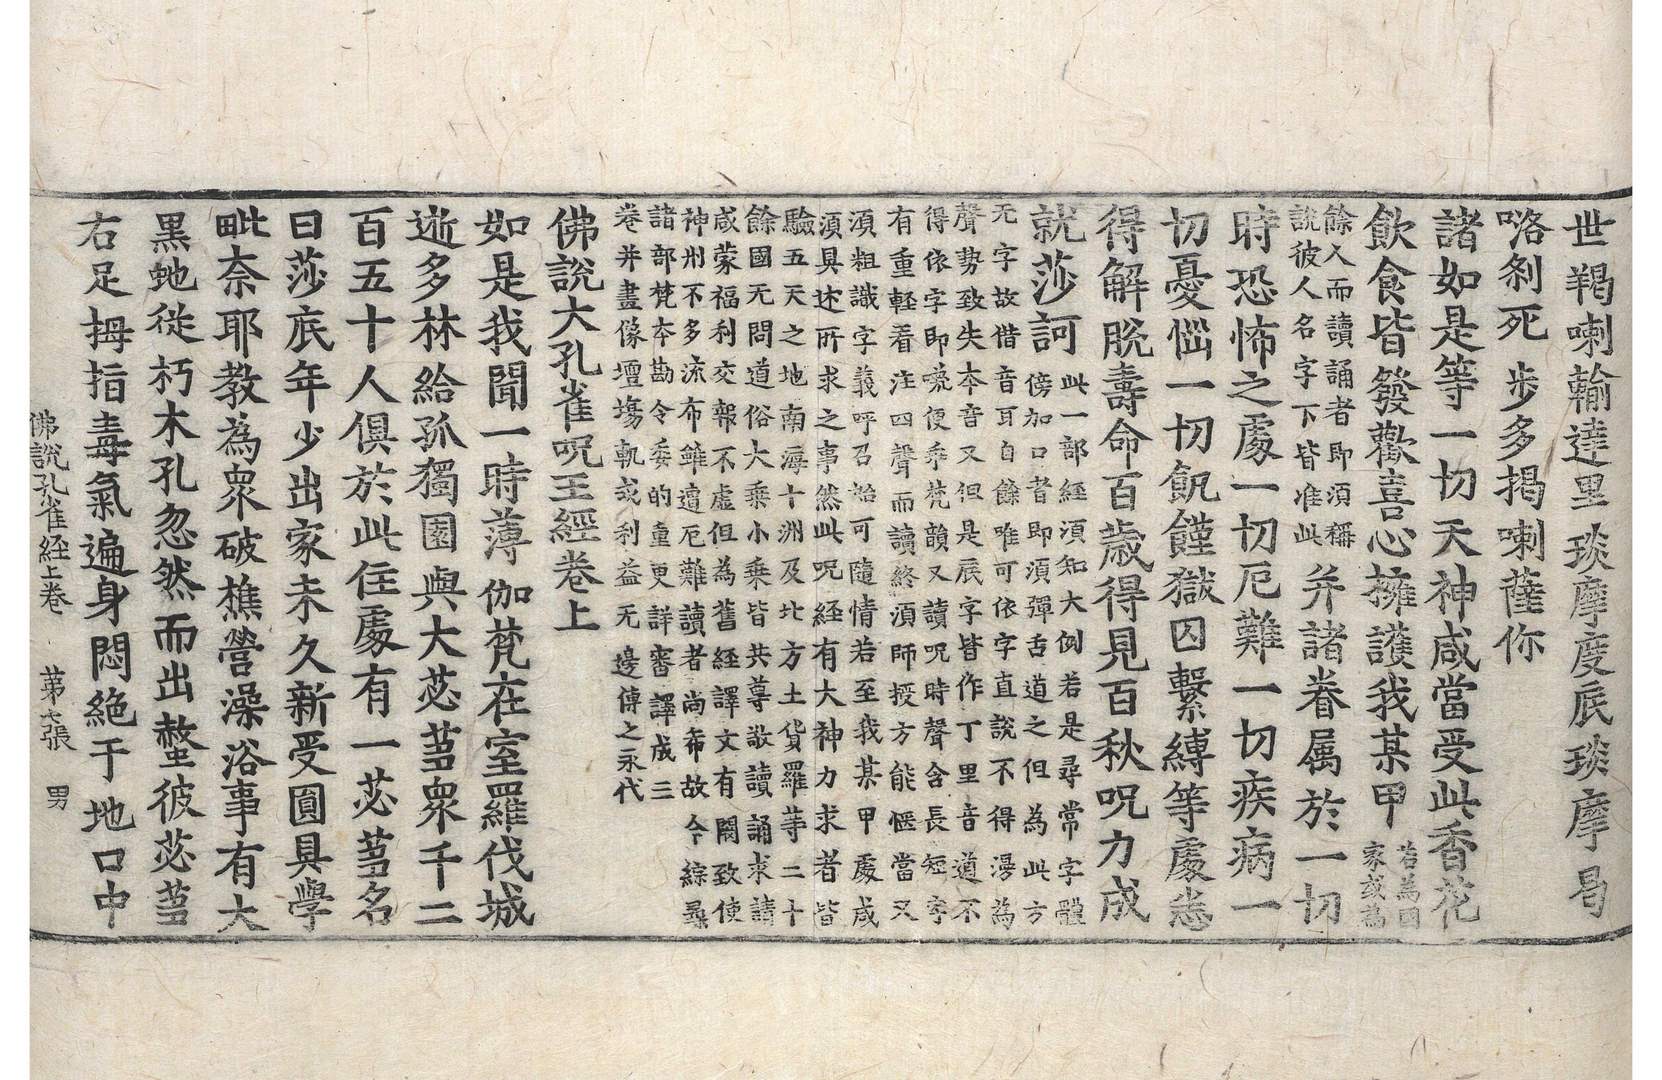 世羯喇輸達里琰摩度底琰摩曷
咯剎死 步多揭喇薩你
諸如是等一切天神咸當受此香花
飲食皆發歡喜心擁護我某甲若為國家或為
餘人而讀誦者即須稱說彼人名字下皆准此并諸眷属於一切
時恐怖之處一切厄難一切疾病一
切憂惱一切飢饉獄囚繫縛等處悉
得解脫壽命百歲得見百秋呪力成
就莎訶此一部經須知大例若是尋常字體
傍加口者即須彈舌道之但為此方
无字故借音耳自餘唯可依字直說不得漫為
聲勢致失本音又但是底字皆作丁里音道不
得依字即喚便乖梵韻又讀呪時聲含長短字
有重輕看注四聲而讀終須師授方能愜當又
須粗識字義呼召始可隨情若至我某甲處咸
須具述所求之事然此呪經有大神力求者皆
驗五天之地南海十洲及北方土貨羅等二十
餘國无問道俗大乘小乘皆共尊敬讀誦求請
咸蒙福利交報不虛但為舊經譯文有闕致使
神州不多流布雖遭厄難讀者尚希故今綜尋
諸部梵本勘令委的重更詳審譯成三
卷并畫像壇場軌或利益无邊傳之永代
佛說大孔雀呪王經卷上
如是我聞一時薄伽梵在室羅伐城
逝多林給孤獨園與大苾芻衆千二
百五十人俱於此住處有一苾芻名
曰莎底年少出家未久新受圓具學
毗奈耶教為衆破樵營澡浴事有大
黑虵從朽木孔忽然而出螫彼苾芻
右足拇指毒氣遍身悶絶于地口中
佛說孔雀經上卷 第七張 男